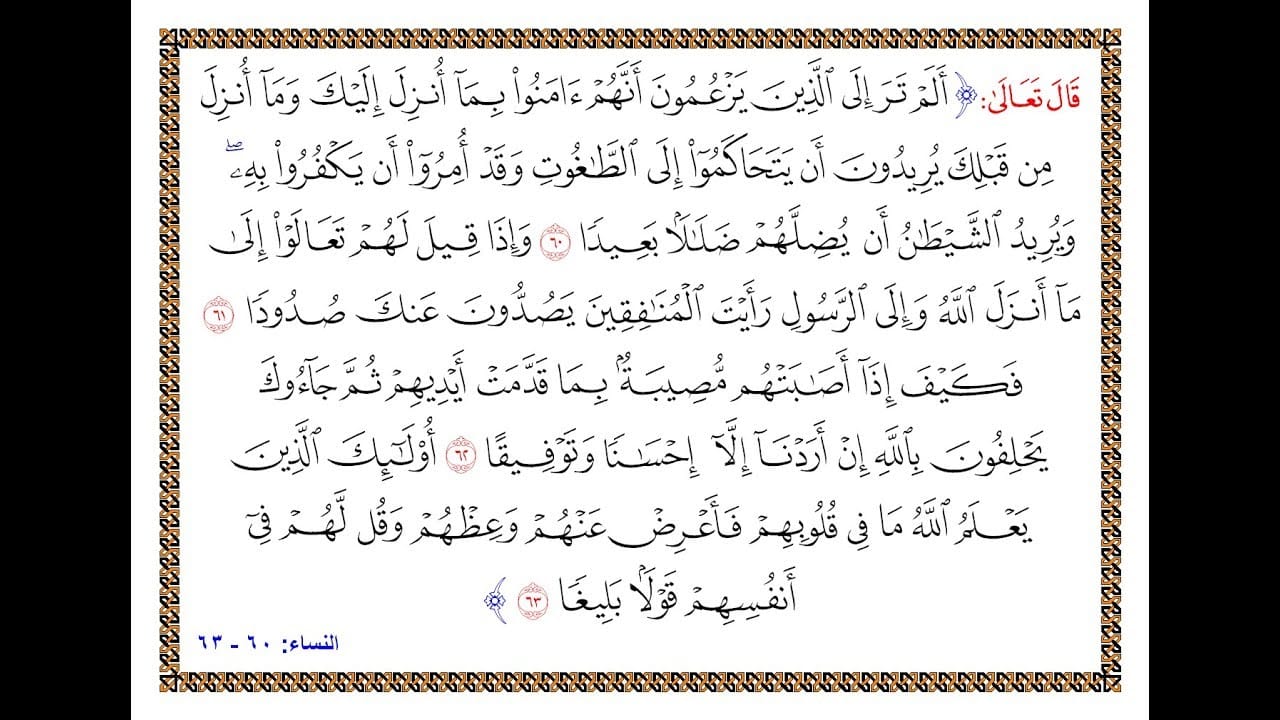 قَالَ تَعَالَىٰ: ﴿ أَلَمْ تَرَ إِلَى ٱلَّذِينَ يَزْعُمُونَ أَنَّهُمْ ءَامَنُوا۟ بِمَآ أُنزِلَ إِلَيْكَ وَمَآ أُنزِلَ
مِن قَبْلِكَ يُرِيدُونَ أَن يَتَحَاكَمُوٓا۟ إِلَى ٱلطَّٰغُوتِ وَقَدْ أُمِرُوٓا۟ أَن يَكْفُرُوا۟ بِهِۦۖ
وَيُرِيدُ ٱلشَّيْطَٰنُ أَن يُضِلَّهُمْ ضَلَٰلًۢا بَعِيدًا ٦٠ وَإِذَا قِيلَ لَهُمْ تَعَالَوْا۟ إِلَىٰ
مَآ أَنزَلَ ٱللَّهُ وَإِلَى ٱلرَّسُولِ رَأَيْتَ ٱلْمُنَٰفِقِينَ يَصُدُّونَ عَنكَ صُدُودًا ٦١
فَكَيْفَ إِذَآ أَصَٰبَتْهُم مُّصِيبَةٌۢ بِمَا قَدَّمَتْ أَيْدِيهِمْ ثُمَّ جَآءُوكَ
يَحْلِفُونَ بِٱللَّهِ إِنْ أَرَدْنَآ إِلَّآ إِحْسَٰنًا وَتَوْفِيقًا ٦٢ أُو۟لَٰٓئِكَ ٱلَّذِينَ
يَعْلَمُ ٱللَّهُ مَا فِى قُلُوبِهِمْ فَأَعْرِضْ عَنْهُمْ وَعِظْهُمْ وَقُل لَّهُمْ فِىٓ
أَنفُسِهِمْ قَوْلًۢا بَلِيغًا ٦٣ ﴾
النساء: ٦٠ - ٦٣